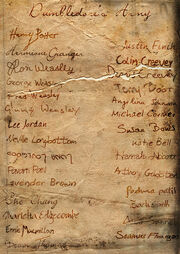 Dumbledore's Army
Harry Potter
Hermione Granger
Ron Weasley
George Weasley
Fred Weasley
Ginny Weasley
Lee Jordan
Neville Longbottom
Luna Lovegood
Lavender Brown
Cho Chang
Marietta Edgecombe
Ernie Macmillan
Justin Finch
Colin Creevey
Dennis Creevey
Terry Boot
Angelina
Michael Corner
Susan Bones
Katie Bell
Hannah Abbott
Anthony Goldstein
Padma Patil
Seamus Finnigan